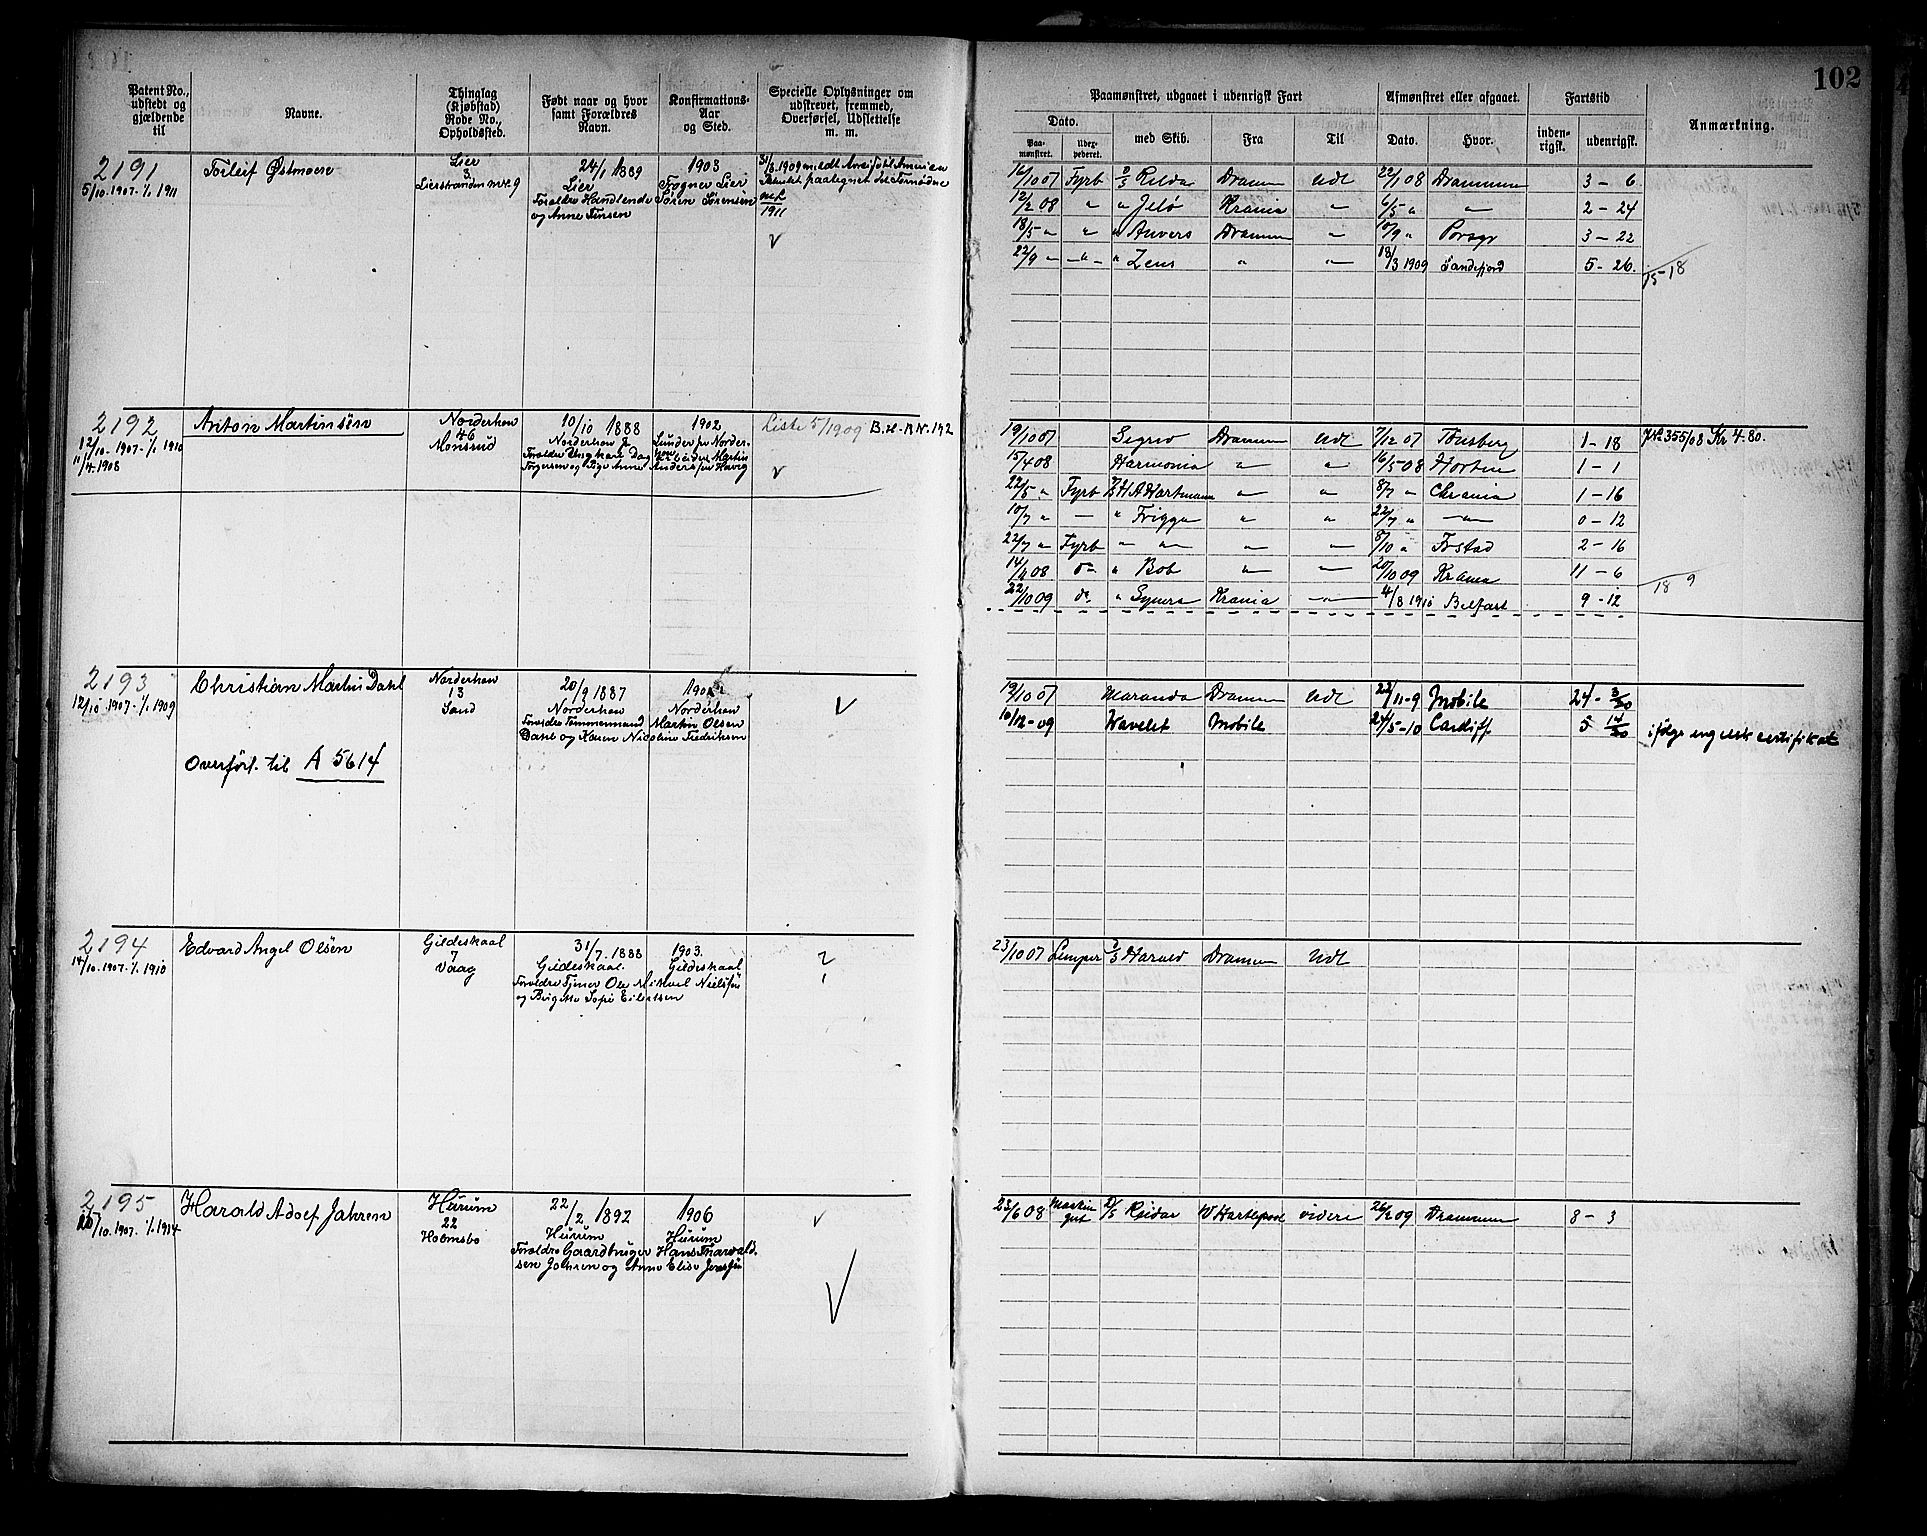 102
Patent No., udstedt og gjældende til
Navne.
Thinglag (Kjøbstad) Rode No., Opholdssted.
Født naar og hvor samt Forældres Navn.
Konfirmations-Aar og Sted.
Specielle Oplysninger om udstrevet, fremmed, Overførsel, Udslettelse m. m.
Paamønstret, udgaaet i udenrigsk Fart
Afmønstret eller afgaaet.
Fartstid
Anmærkning.
Dato.
Paa-mønstret.
med Skib.
Fra
Til
Dato.
Hvor.
inden-rigsk.
udenrigsk.
2191
5/10. 1907-1/1 1911
Torleif Østmoen
Lier
3
24/1 1889
Lier
Forældre Handlende Søren Sørensen
og Anne Jensen
1903
Frogner Lier
1911
16/10 07 Fyrb D/S Reidar Dramen Udl 22/1 08 Drammen 3 - 6
12/2 08 " " Jelø Krania " 6/5 " " 2 - 24
18/5 " " " Anvers Dramen " 10/9 " Porsgr 3 - 22
22/9 " " " Zeus " " 18/3 1909 Sandefjord 5 - 26
15-18
2192
12/10. 1907-1/1 1910
11/4. 1908
Anton Martinsen
Norderhov
46
Monsrud
10/10 1888
Norderhov
1902
Liste 5/1909 B.H.R. Nr. 192
19/10 07 Sigrid Dramen Udl 7/12 07 Tønsberg 1 - 18 JNo 355/08 Kr 4.80.
15/4 08 Harmonia " " 16/5 08 Horten 1 - 1
22/5 " Fyrb D/S H A Hartmann " " 8/7 " Chrania 1 - 16
10/7 " — " Frigga " " 22/7 " — 0 - 12
22/7 " Fyrb " " " — 8/10 " Frstad 2 - 16
14/ 08 do " Bob " — 20/10 09 Krania 11 - 6
22/10 09 do " Krania — 4/8 1910 Belfast 9 - 12
18 9
2193
12/10. 1907-1/1 1909
Christian Martin Dahl
Norderhov
13
Sand
20/9 1887
Norderhov
Norderhov
Forældre Tømmermand Martin Olsen
Dahl og Karen Nicoline Fredriksen
Overført til A 5614
19/10 07 Maranda Dramen Udl 22/11-9 Mobile 24 - 3/30
10/12-09 Wavelet Mobile 24/5-10 Cardiff 5 14/30 ifølge engelsk certifikat
2194
14/10. 1907-1/1. 1910
Edvard Angel Olsen
Gildeskaal
7
Vaag
31/7. 1888
Gildeskaal
1903.
Gildeskaal
Forældre Ole Mikael Nielsen
23/10 07 Lemper D/S Harald Dramen Udl
2195
/10. 1907. 1/1. 1914
Harald Adolf Jahren
Hurum
22
Holmsbo
22/2 1892
Hurum
1906
Hurum
Forældre Gaardbruger Hans Thorvald-
sen Jahren og Anne Elise
23/6 08 D/S Reidar W Hartlepool videre 26/2 09 Drammen 8 - 3